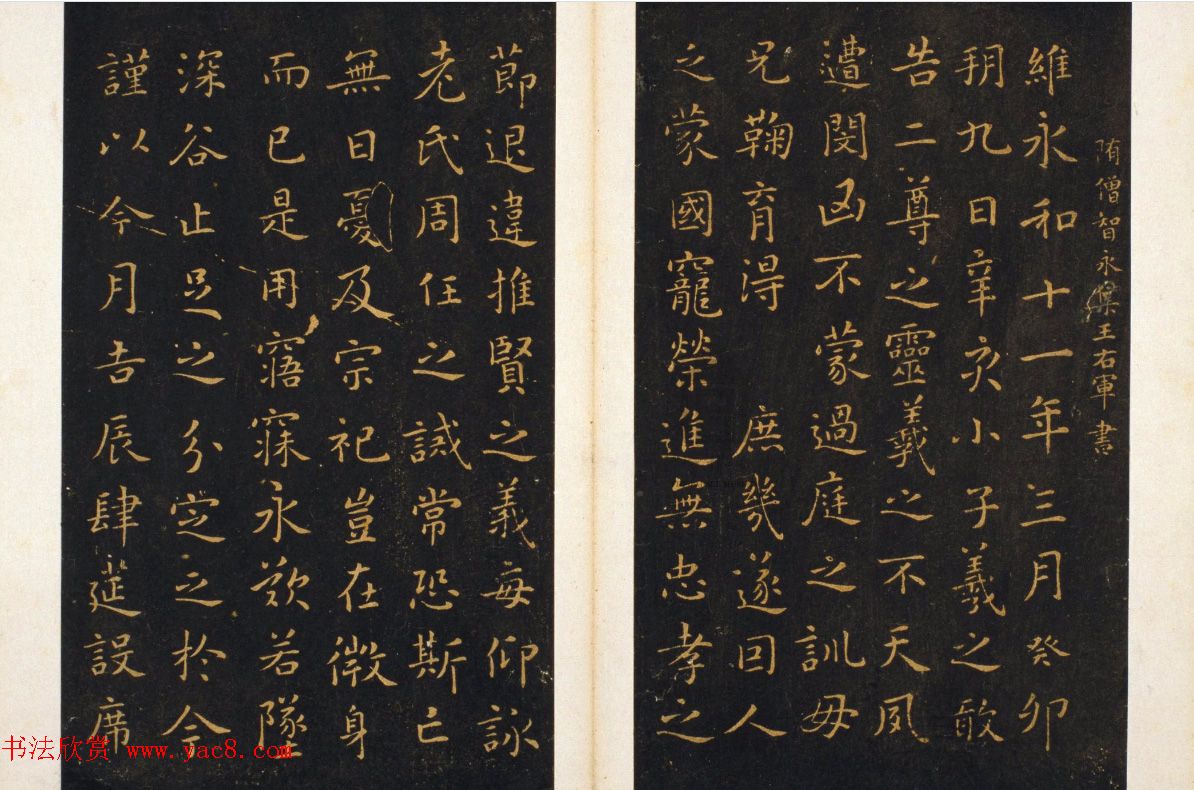 隋僧智永集王右軍書
維永和十一年三月癸卯
朔九日辛亥小子羲之敢
告二尊之靈羲之不天夙
遭閔凶不蒙過庭之訓母
兄鞠育得 庶幾遂因人
之蒙國寵榮進無忠孝之
節退違推賢之義每仰詠
老氏周任之誡常恐斯亡
無日憂及宗祀豈在微身
而已是用寤寐永歎若墜
深谷止足之分定之於今
謹以今月吉辰肆筵設席
书法欣赏 www.yac8.com